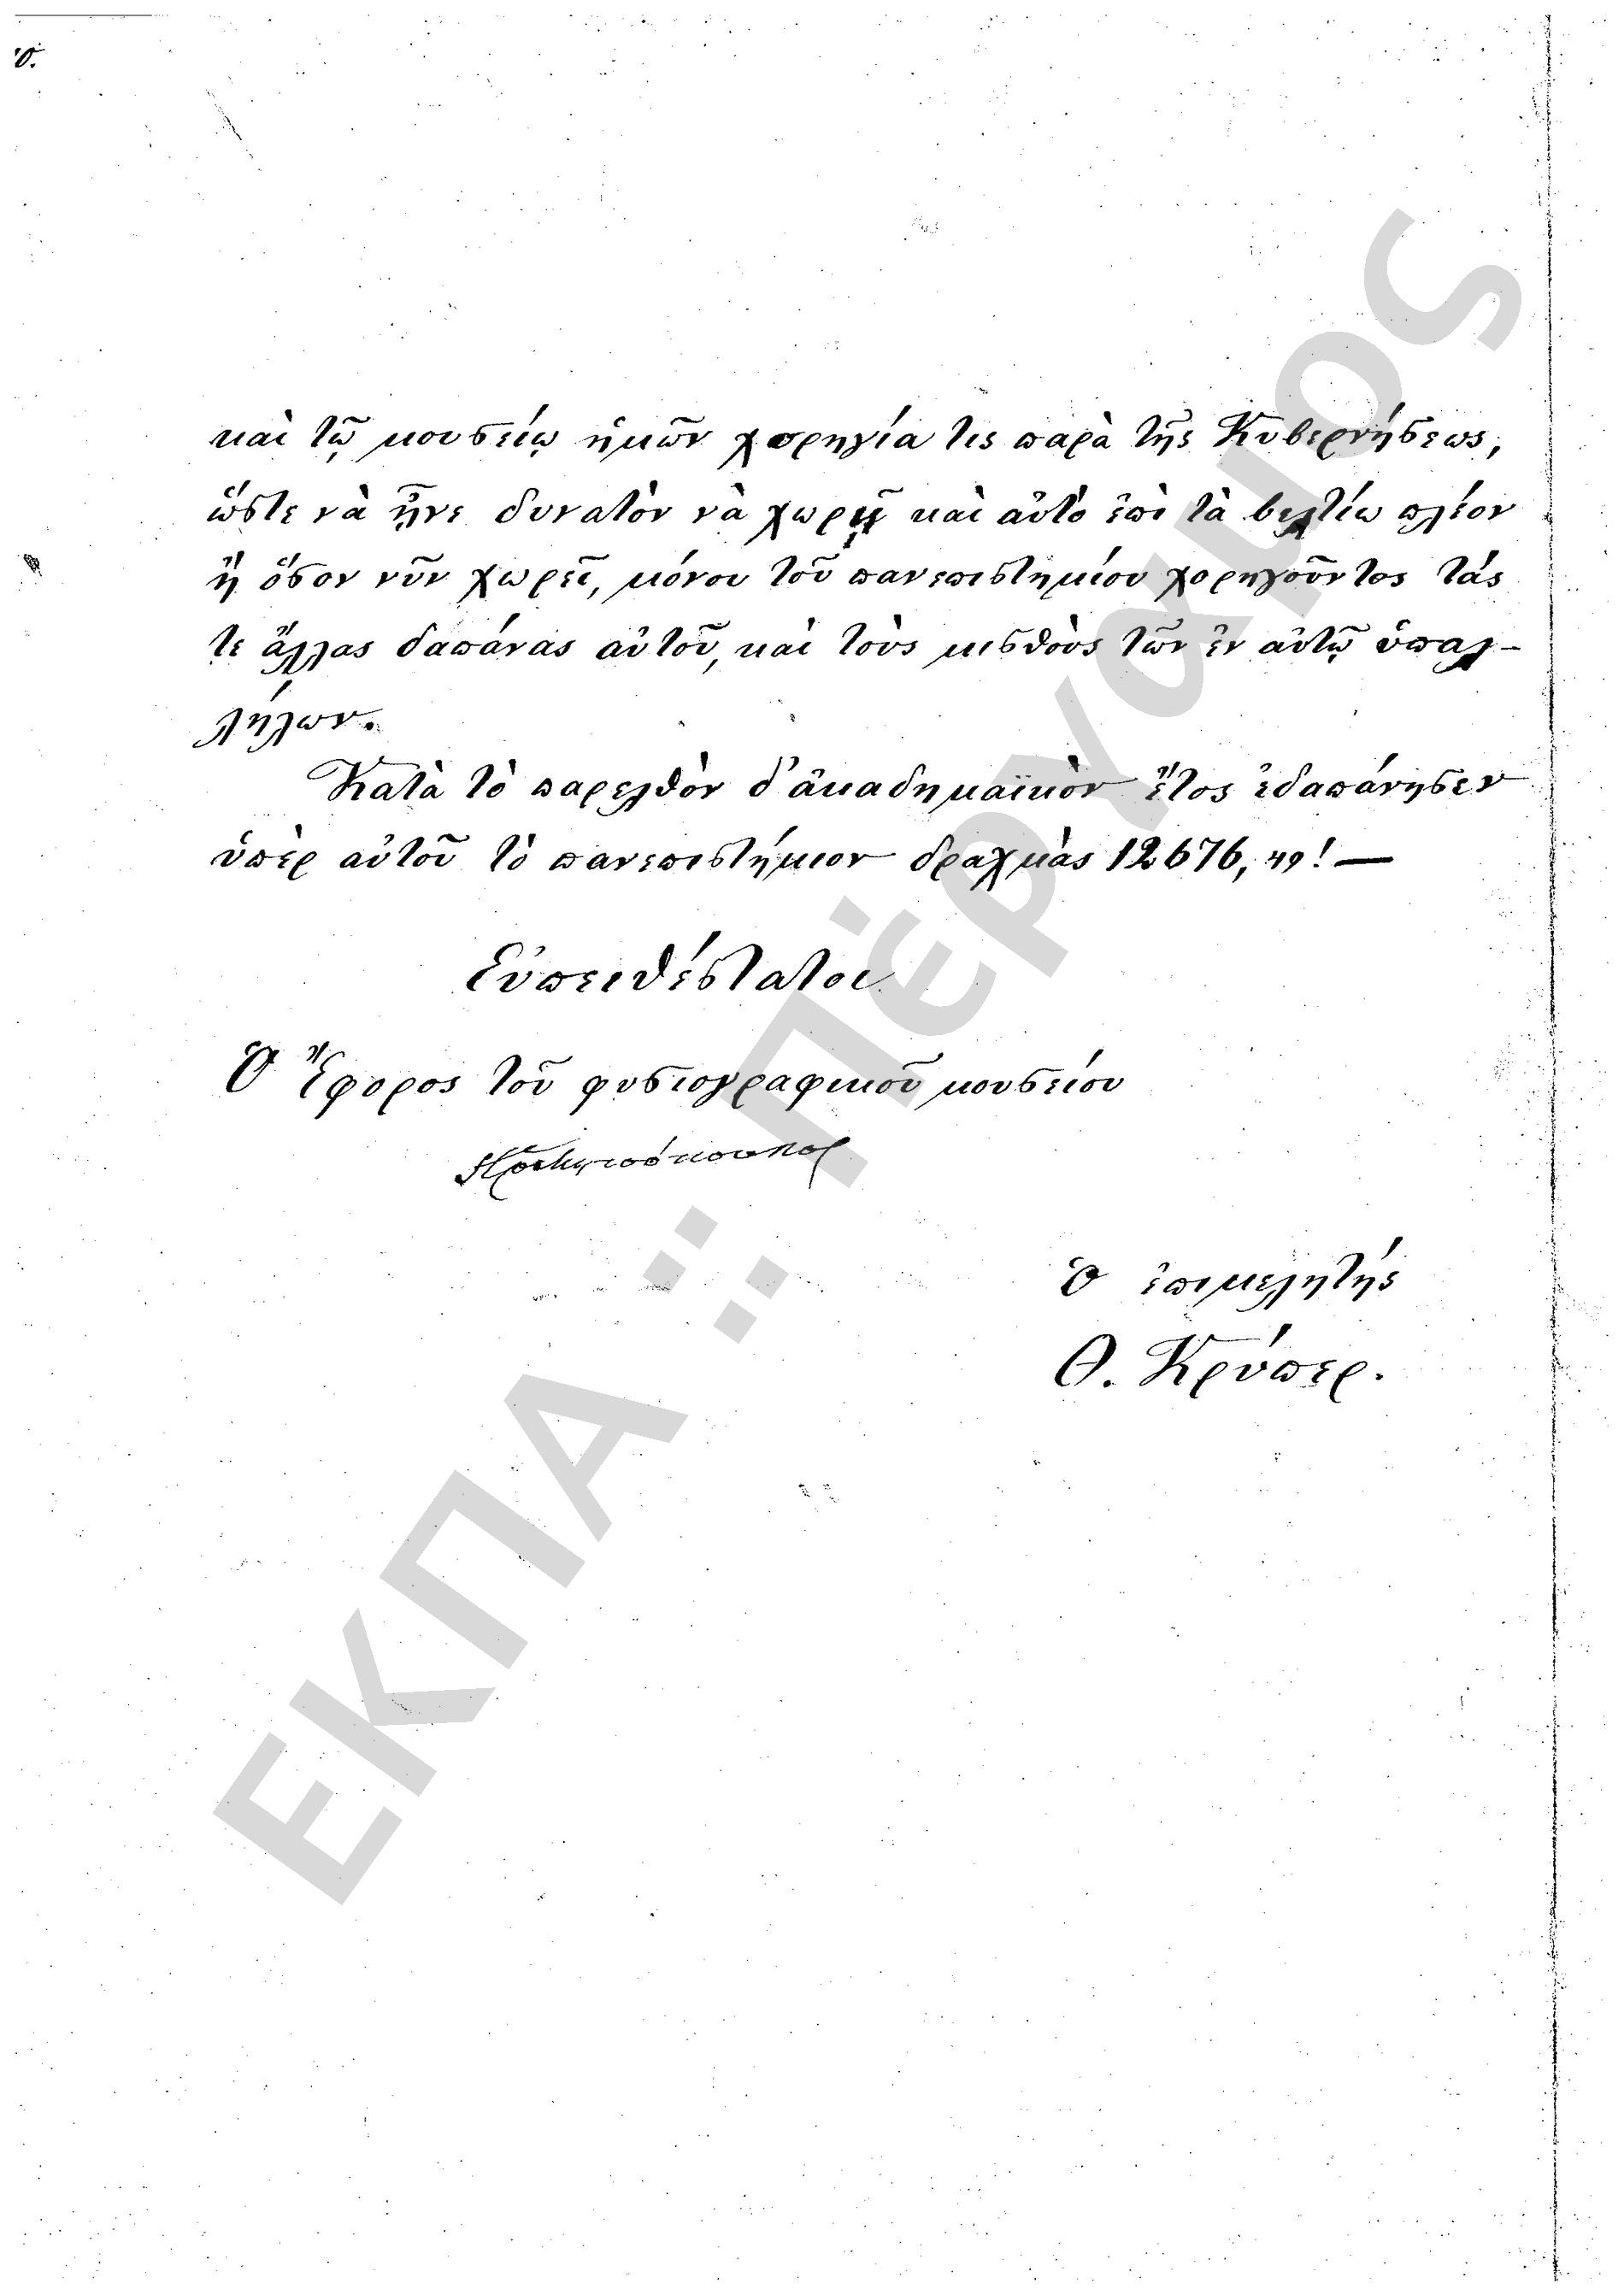 καὶ τῷ μουσείῳ ἡμῶν χορηγία τις παρὰ τῆς Κυβερνήσεως,
ὥστε νὰ ᾖνε δυνατὸν νὰ χωρῇ καὶ αὐτὸ ἐπὶ τὰ βελτίω πλέον
ἢ ὅσον νῦν χωρεῖ, μόνου τοῦ πανεπιστημίου χορηγοῦντος τάς
τε ἄλλας δαπάνας αὐτοῦ, καὶ τοὺς μισθοὺς τῶν ἐν αὐτῷ ὑπαλ-
λήλων.
Κατὰ τὸ παρελθὸν δ' ἀκαδημαϊκὸν ἔτος ἐδαπάνησεν
ὑπὲρ αὐτοῦ τὸ πανεπιστήμιον δραχμὰς 12676, 49! —
Εὐπειθέστατοι
Ὁ Ἔφορος τοῦ φυσιογραφικοῦ μουσείου
Ὁ ἐπιμελητής
Θ. Κρύπερ.
ΕΚΠΑ :: Πέργαμος